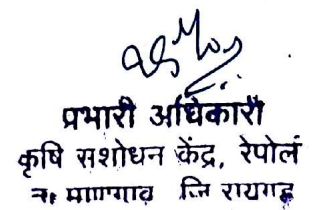 प्रभारी अधिकारी
कृषि सशोधन केंद्र, रेपोलं
रायगड